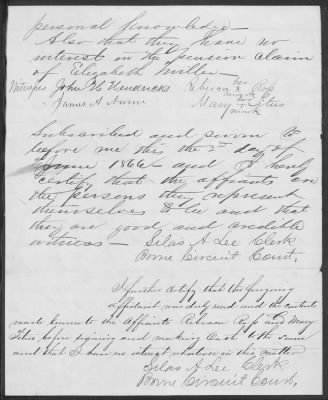 personal knowledge -
Also that they have no
interest in the pension claim
of Elizabeth Miller -
Witnesses John H Hendricks Rebecca her x mark Ross
James A Nunn Mary her x mark Titus
Subscribed and sworn to
before me this the 2nd day of
June 1866 - and I hereby
certify that the affiants are
the persons they represent
themselves to be and that
they are good and credible
witness - Silas A Lee Clerk
Boone Circuit Court.
I further certify that the foregoing
affidavit was duly read and the contents
made known to the Affiants Rebecca Ross and Mary
Titus, before signing and making Oath to the same
and that I have no interest whatever in this matter
Silas A Lee Clerk
Boone Circuit Court.